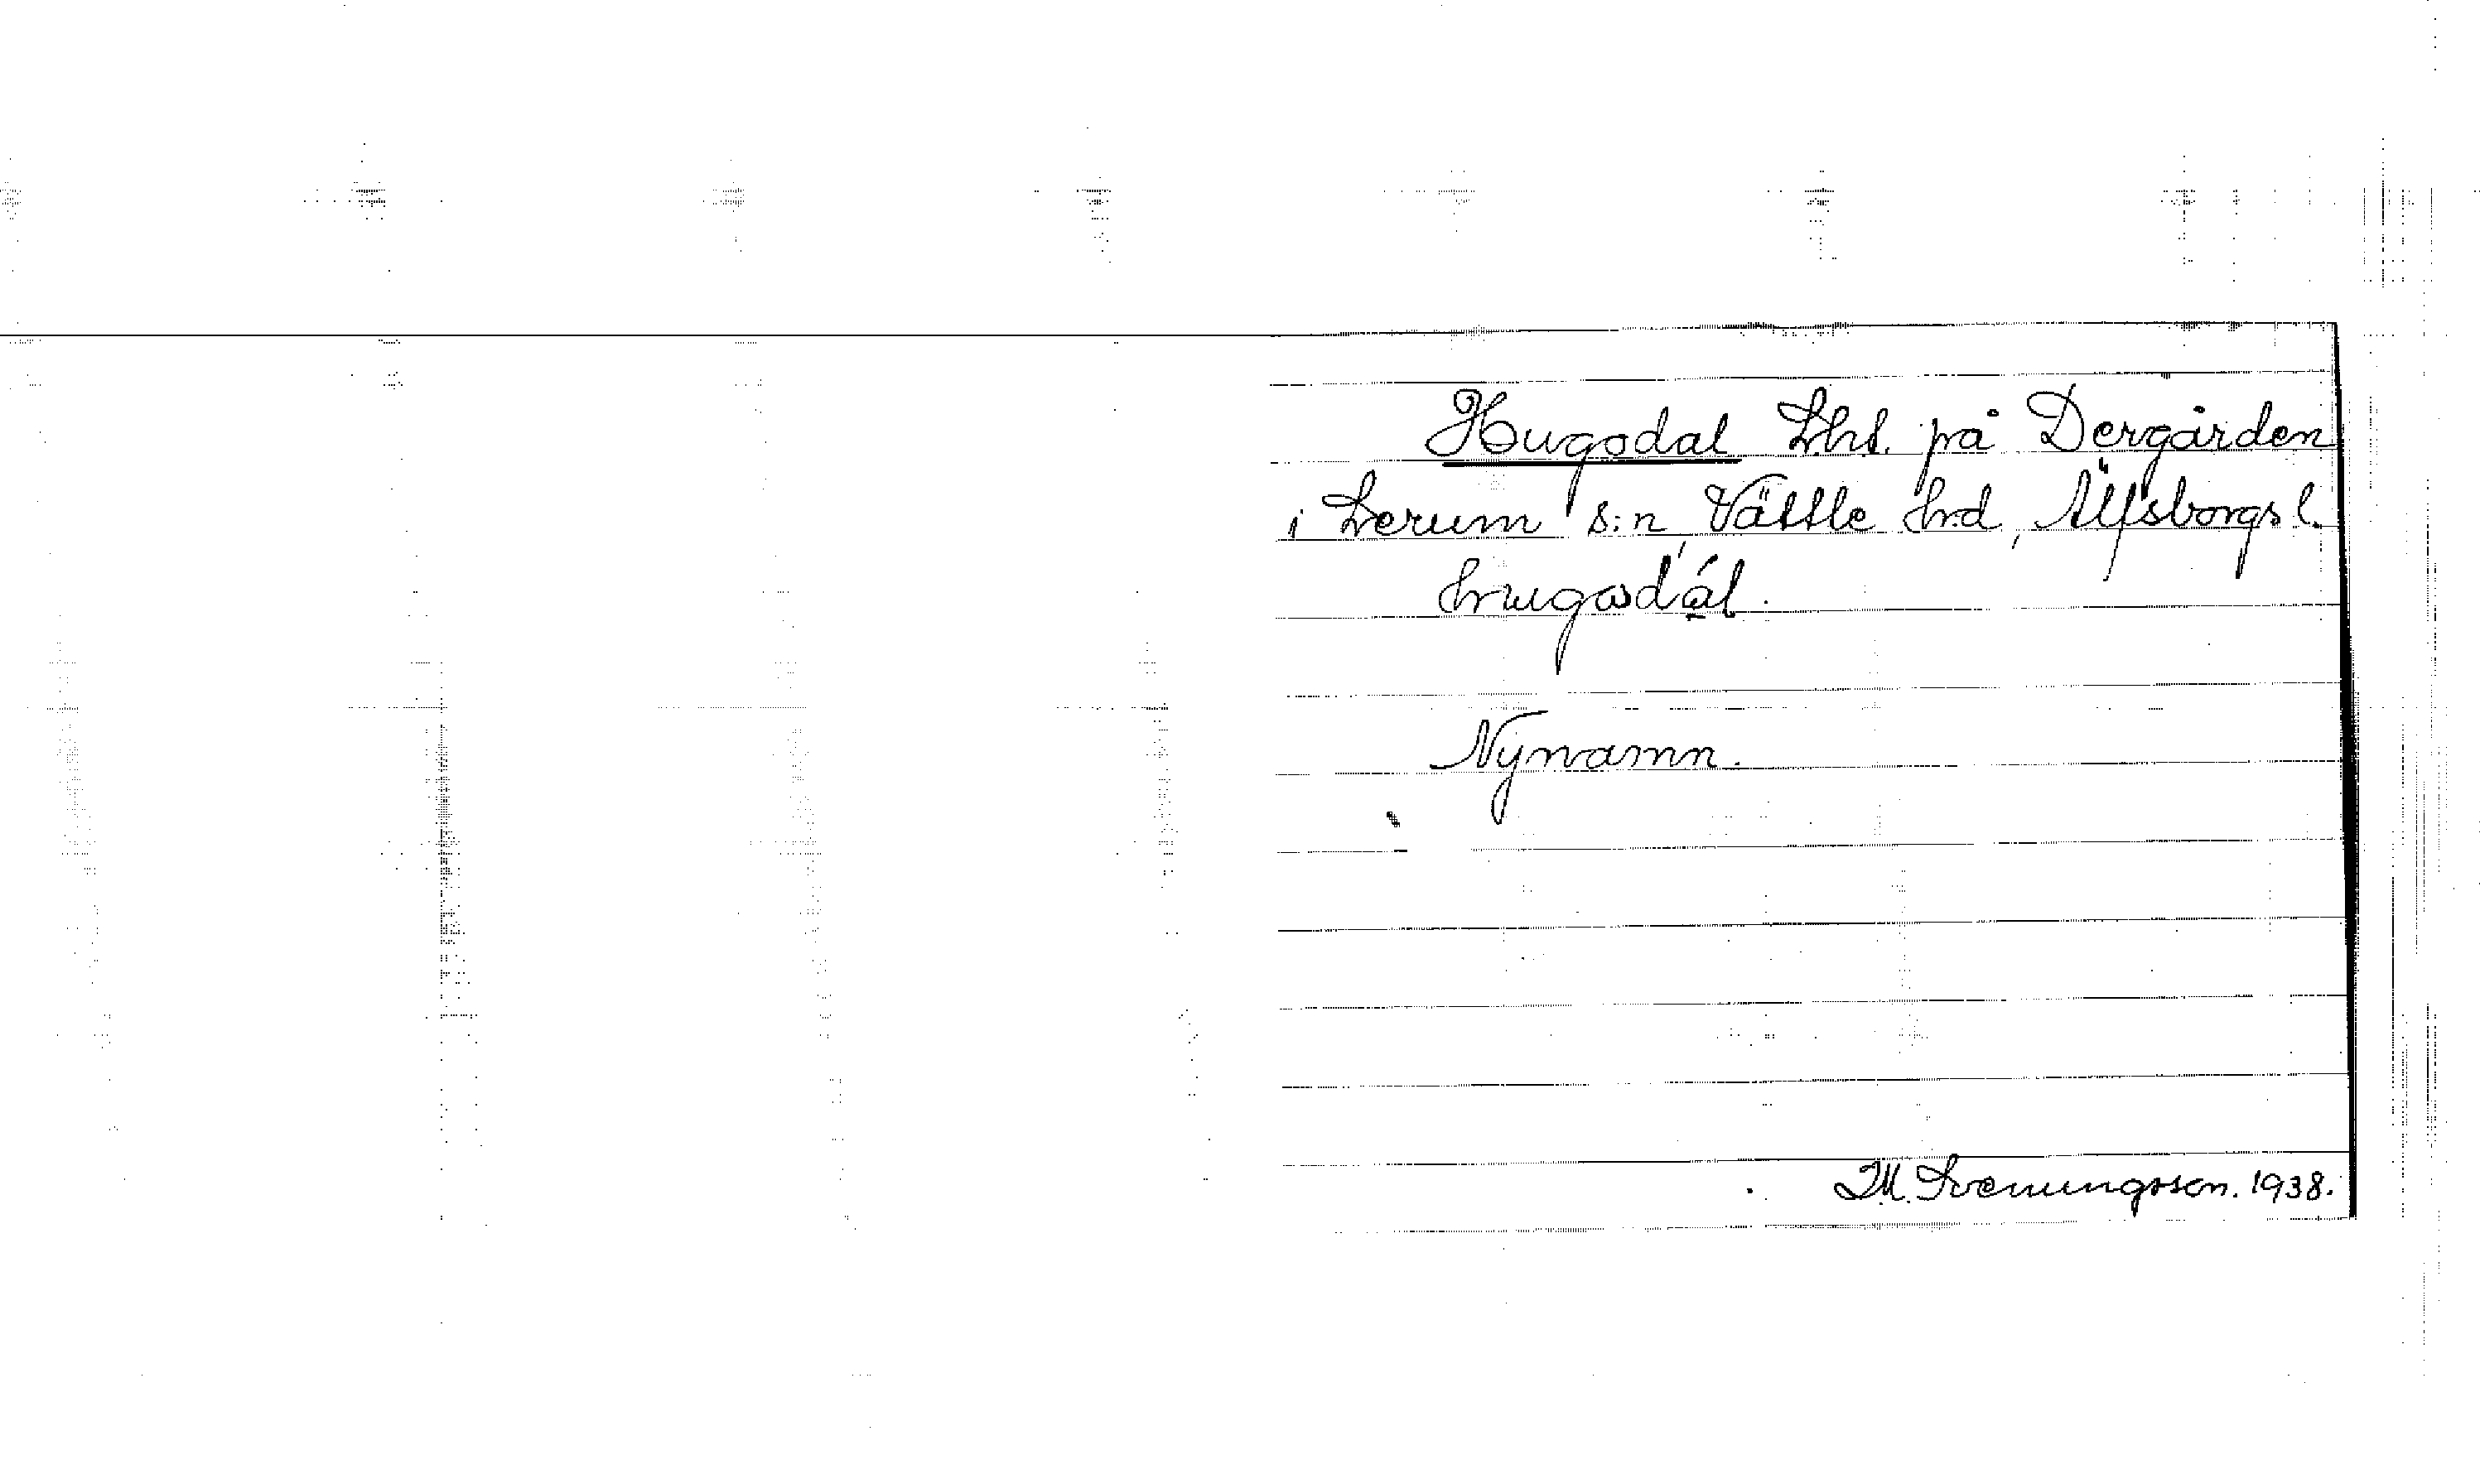 Hugodal Lht. på Dergården
i Lerum s:n Vättle hrd, Älfsborgs l.
Nynamn.
M. Svenungsson. 1938.